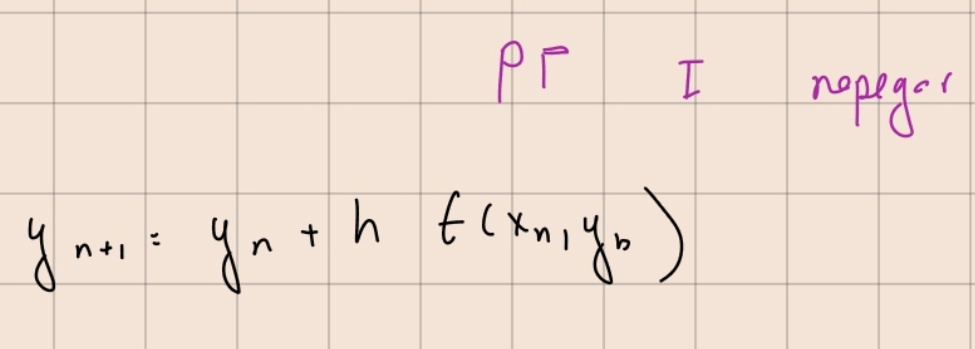 РГ I порядок
y_{n+1} = y_n + h f(x_n, y_n)